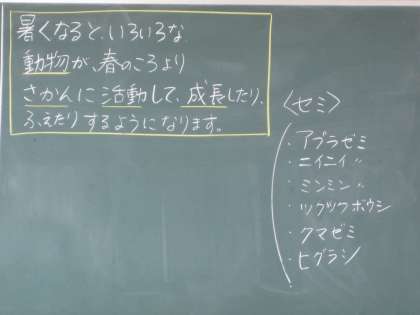 暑くなると、いろいろな
動物が、春のころより
さかんに活動して、成長したり、
ふえたりするようになります。
〈セミ〉
・アブラゼミ
・ニイニイ〃
・ミンミン〃
・ツクツクボウシ
・クマゼミ
・ヒグラシ
・